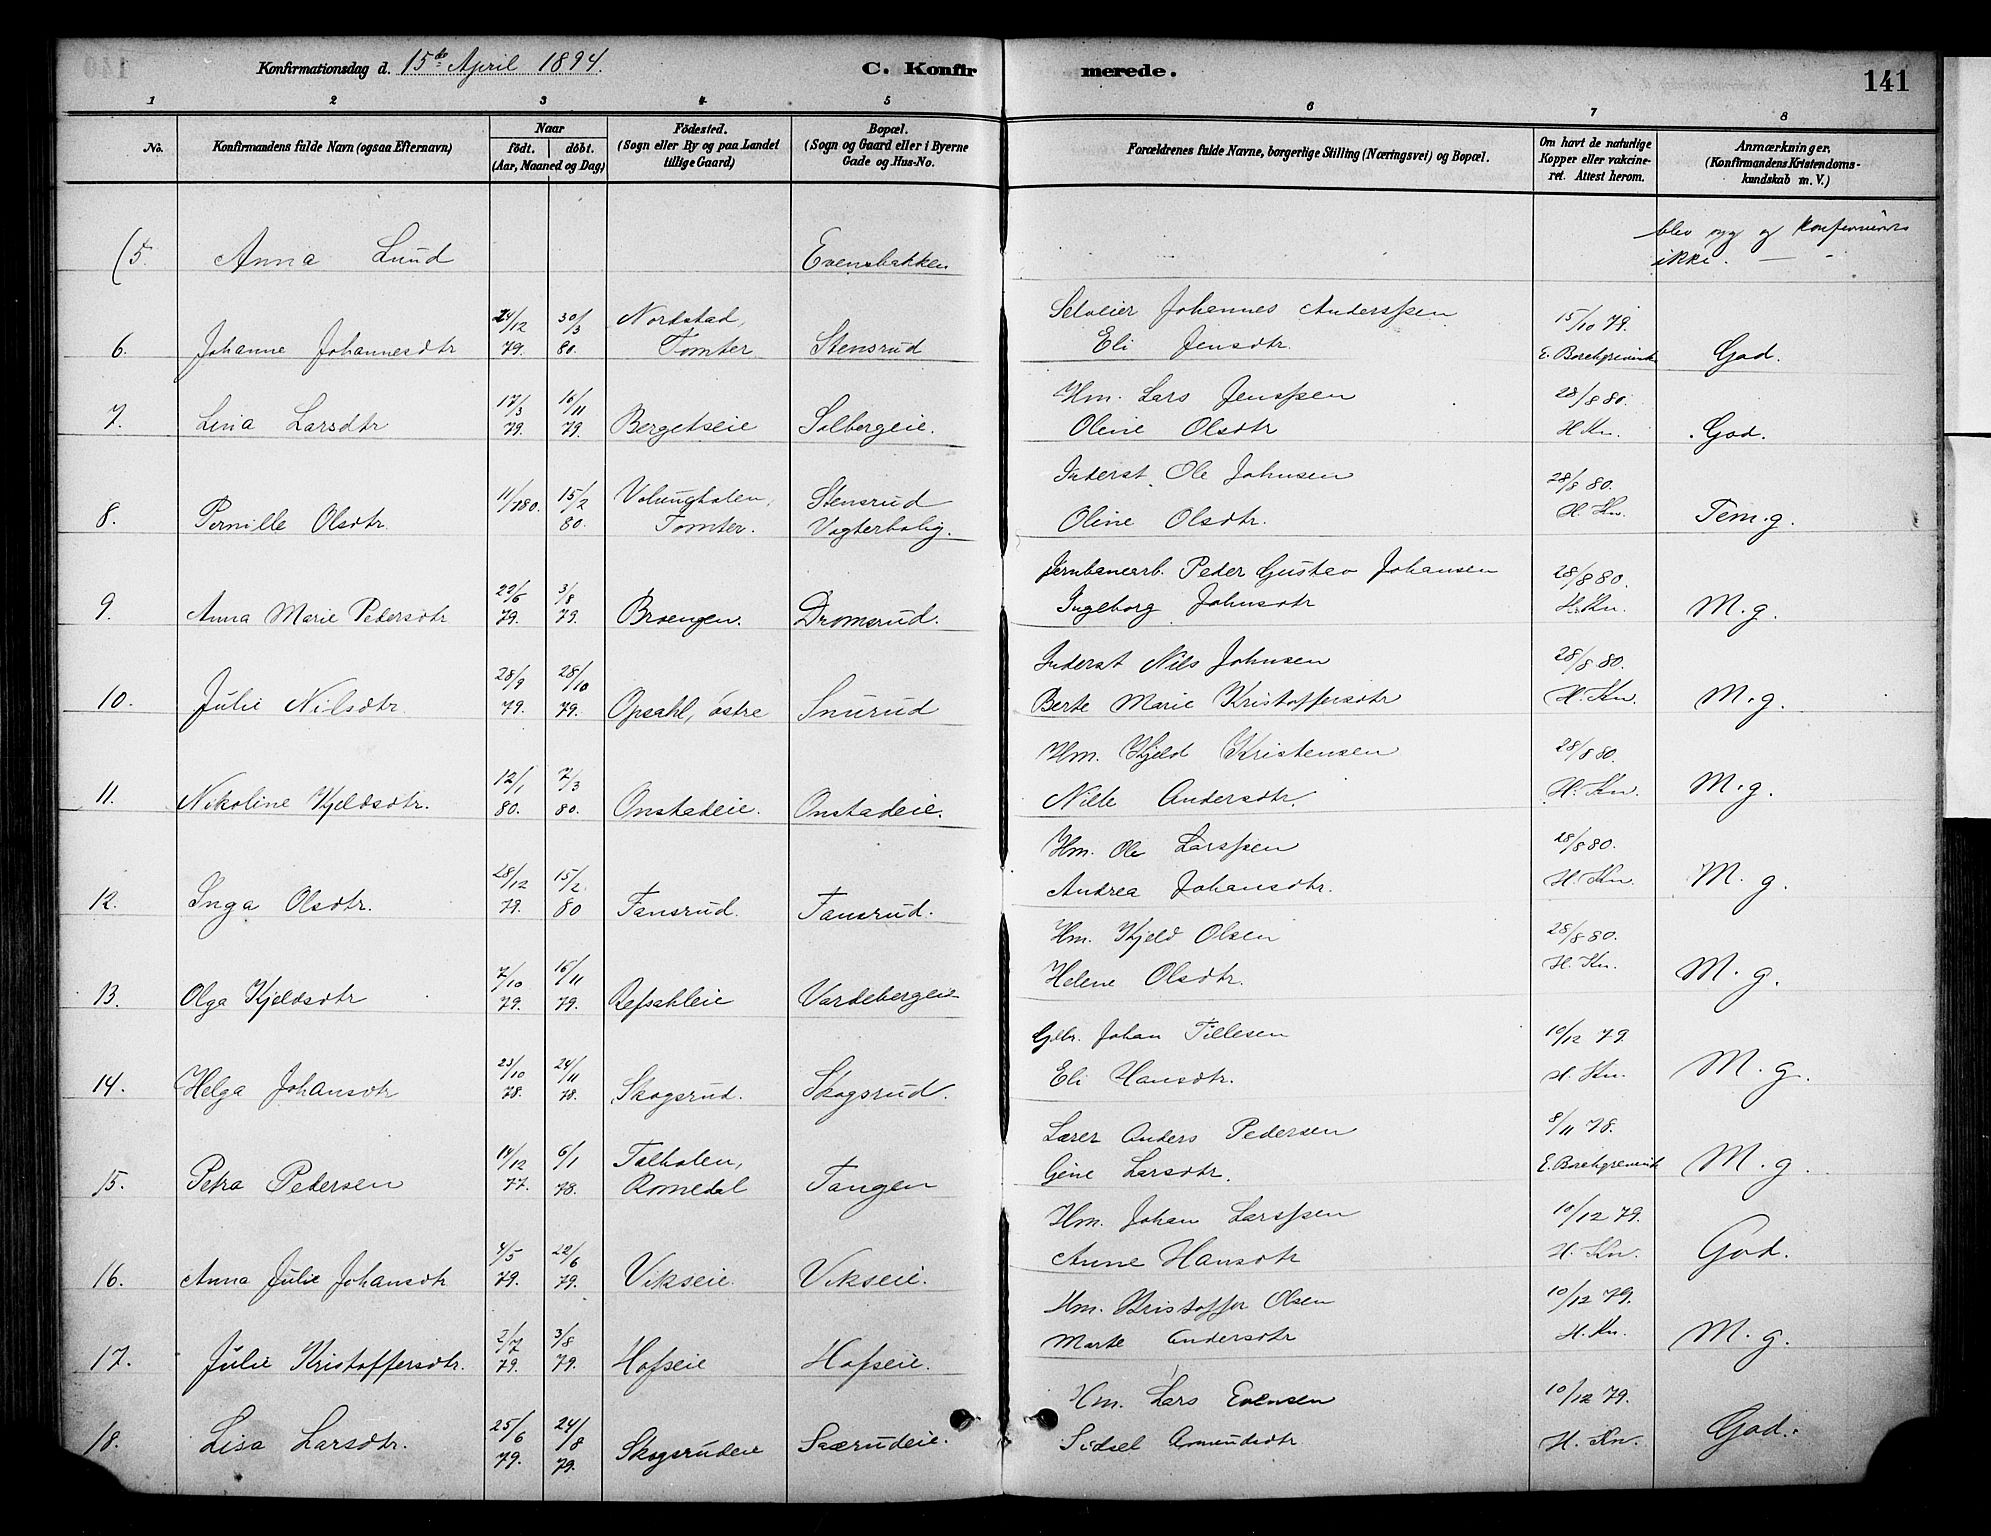 Konfirmationsdag d. 15de April 1894. C. Konfir merede. 141
1 2 3 4 5 6 7 8
No. Konfirmandens fulde Navn (ogsaa Efternavn) Naar født. døbt. (Aar, Maaned og Dag) Fødested. (Sogn eller By og paa Landet tillige Gaard) Bopæl. (Sogn og Gaard eller i Byerne Gade og Hus-No. Forældrenes fulde Navne, borgerlige Stilling (Næringsvei) og Bopæl. Om havt de naturlige Kopper eller vakcineret. Attest herom. Anmærkninger. (Konfirmandens Kristendomskundskab m. V.)
(5. Anna Lund Evensbakken blev syg og konfirmeres ikke.
6. Johanne Johannesdtr 24/12 79. 30/3 80. Nordstad, Tomter Stensrud Selveier Johannes Anderssen
Eli Jensdtr. 15/10 79. E. Borchgrevink God.
7. Lina Larsdtr 17/3 79. 16/11 79. Bergetseie Solbergeie. Hm. Lars Jenssen
Oline Olsdtr 28/8 80. H. Kn. God.
8. Pernille Olsdtr. 11/1 80. 15/2 80. Tomter. Stensrud Vogterbolig. Inderst. Ole Johnsen
Oline Olsdtr. 28/8 80. H. Kn. Tem.g.
9. Anna Marie Pedersdtr 29/6 79. 3/8 79. Brængen. Dromsrud. Jernbanearb. Peder Gustav Johansen
Ingeborg Johnsdtr 28/8 80. H. Kn. M.g.
10. Julie Nilsdtr 28/9 79. 28/10 79. Opsahl, østre Snurud Inderst Nils Johnsen
Berte Marie Kristoffersdtr 28/8 80. H. Kn. M.g.
11. Nikoline Kjeldsdtr. 12/1 80. 7/3 80. Onstadeie. Onstadeie. Hm. Kjeld Kristensen
Andersdtr. 28/8 80. H. Kn. M.g.
12. Inga Olsdtr. 28/12 79. 15/2 80 Fansrud. Fansrud. Hm. Ole Larssen
Andrea Johansdtr. 28/8 80. H. Kn. M.g.
13. Olga Kjeldsdtr 7/10 79. 16/11 79. Refsahleie Vardebergeie Hm. Kjeld Olsen
Helene Olsdtr. 28/8 80. H. Kn. M.g.
14. Helga Johansdtr 23/10 78. 24/11 78. Skogsrud. Skogsrud. Gbr. Johan Tillesen
Eli Hansdtr. 10/12 79. H. Kn. M.g.
15. Petra Pedersen 14/12 77. 6/1 78. Romedal Tangen Lærer Anders Pedersen
Gine Larsdtr. 8/11 78. E. Borchgrevink M.g.
16. Anna Julie Johansdtr 4/5 79. 22/6 79. Vikseie. Vikseie. Hm. Johan Larssen
Anne Hansdtr 10/12 79. H. Kn. God.
17. Julie Kristoffersdtr. 2/7 79. 3/8 79. Hofseie Hofseie. Hm. Kristoffer Olsen
Marte Andersdtr 10/12 79. H. Kn. M.g.
18. Lisa Larsdtr. 25/6 79. 24/8 79. Skogsrudeie Særudeie. Hm. Lars Evensen
Sidsel Amundsdtr 10/12 79. H. Kn. God.